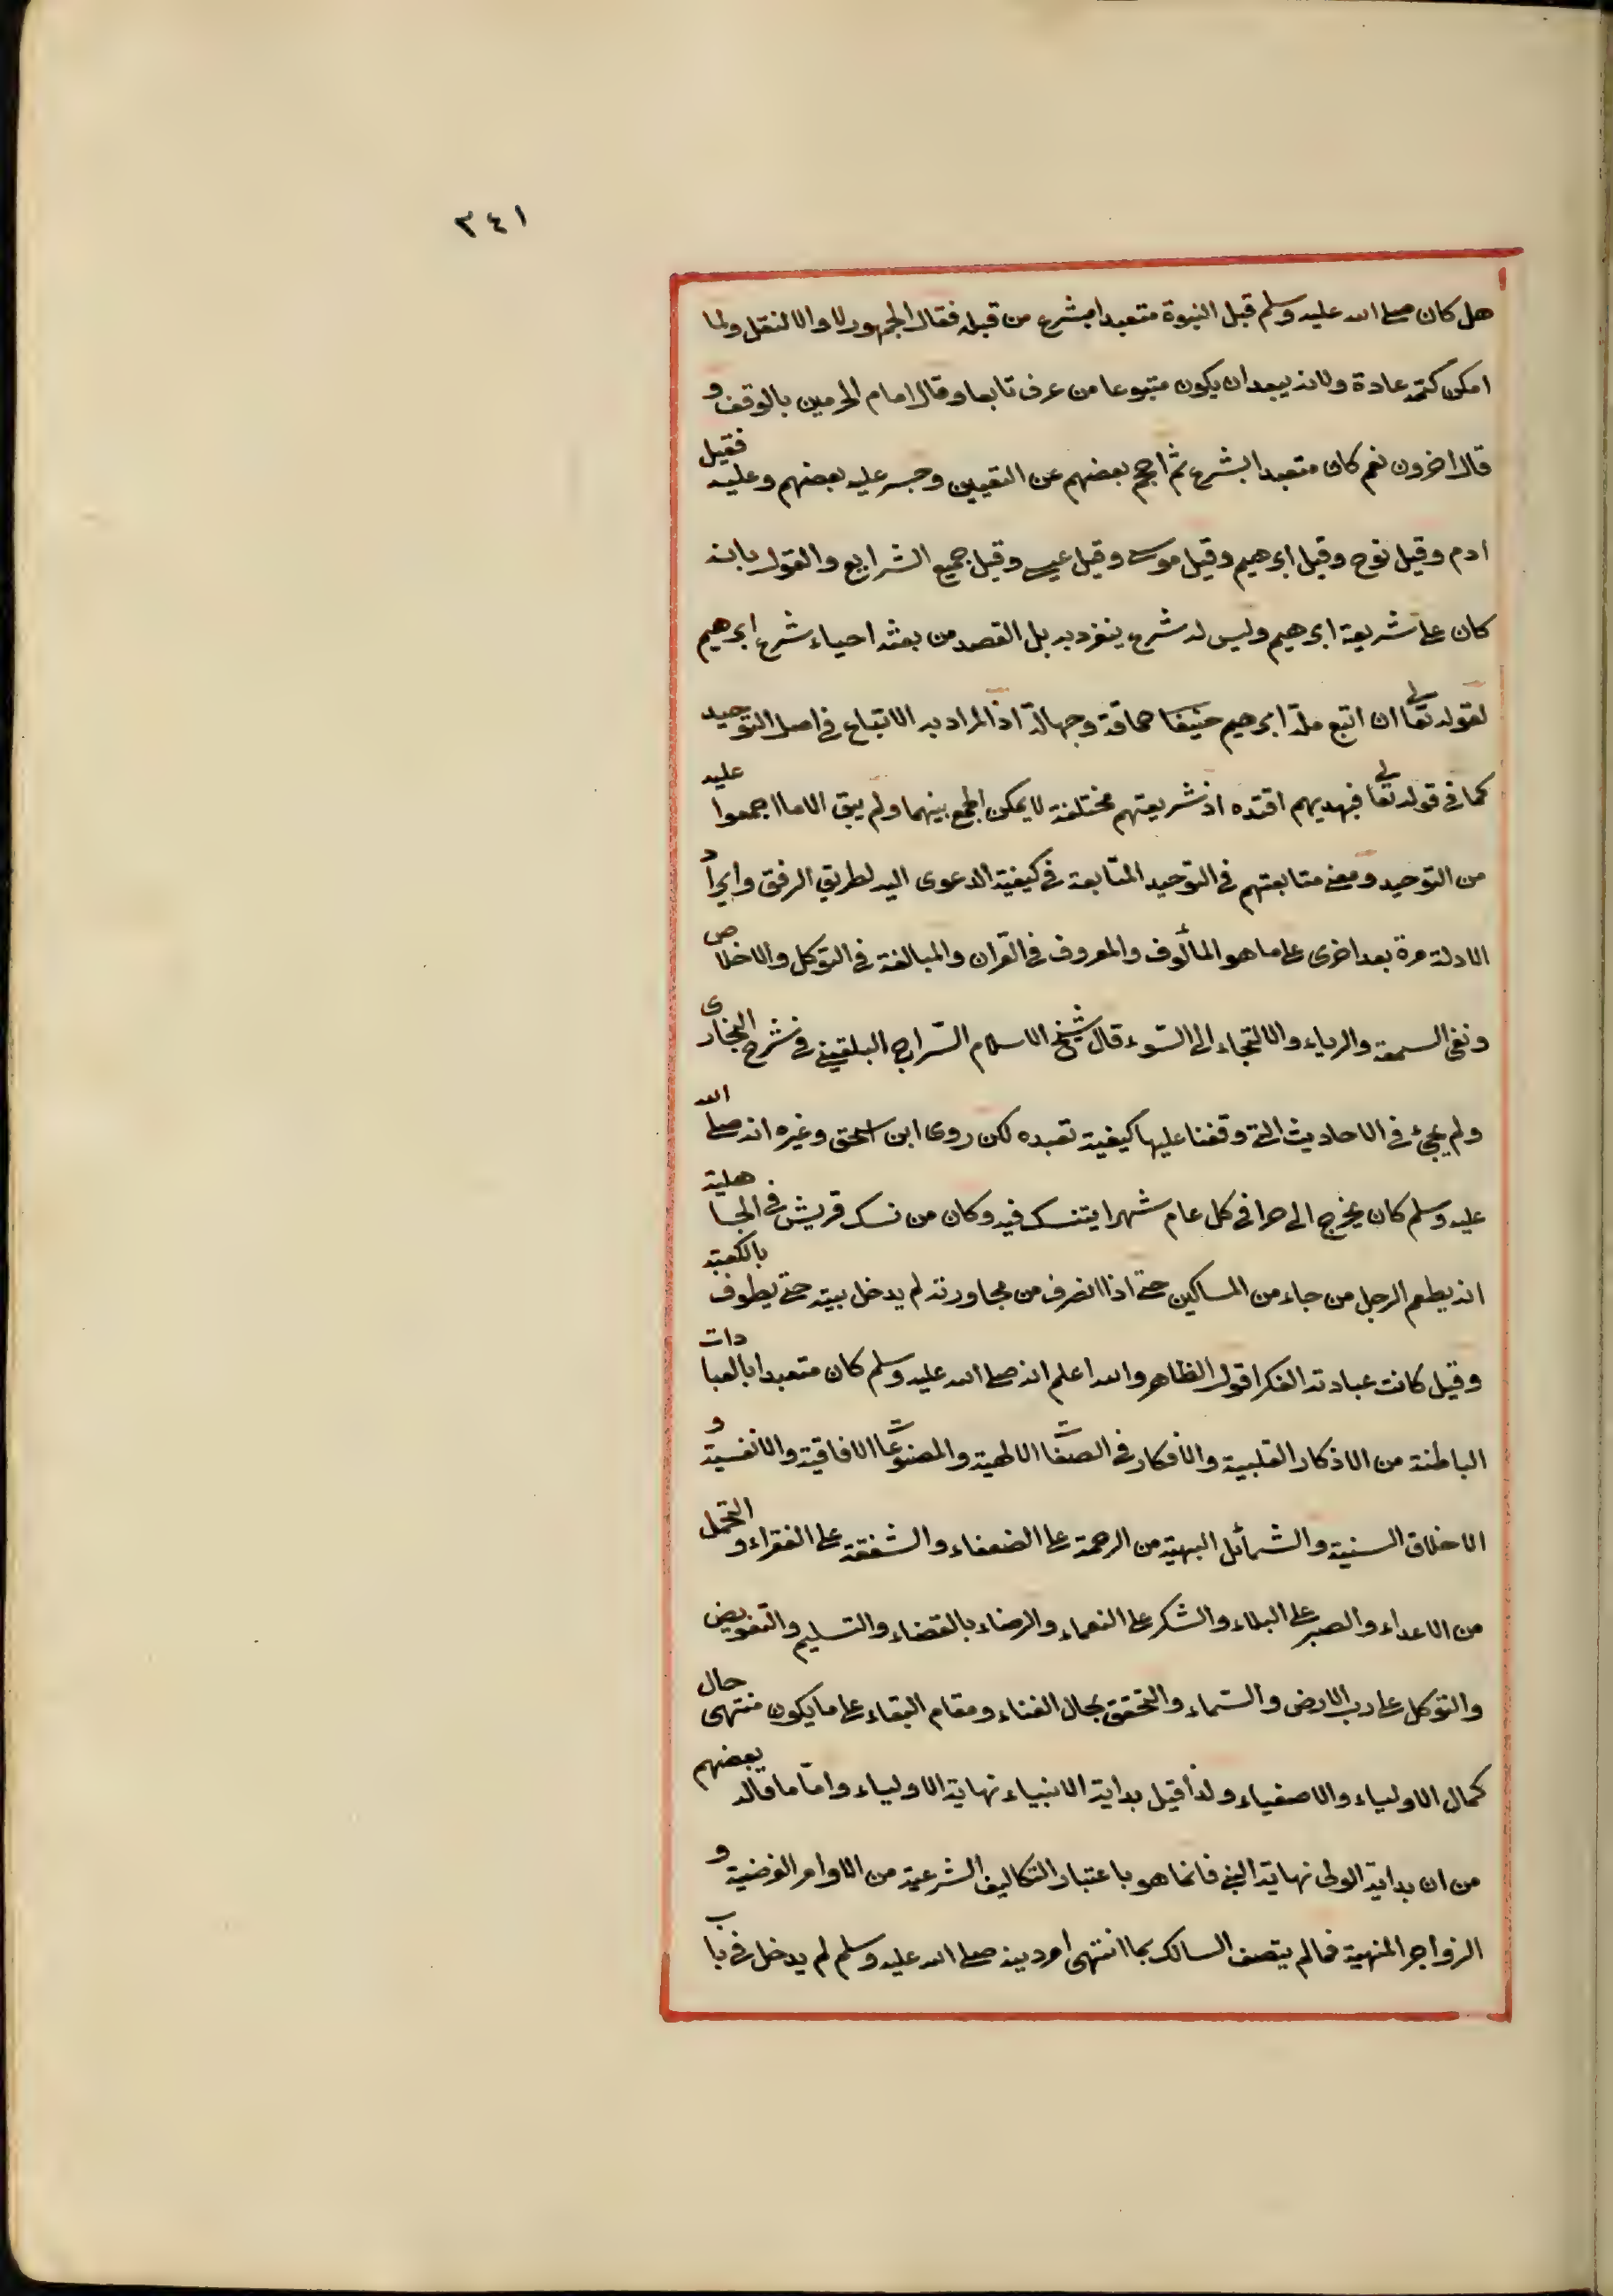 ٣٤١
هل كان صلى الله عليه وسلم قبل النبوة متعبدا بشرع من قبله فقال الجمهور لا والا لنقل ولما
امكن كتمه عادة ولانه يبعد ان يكون متبوعا من عرف تابعا وقال امام الحرمين بالوقف و
قال اخرون نعم كان متعبدا بشرع ثم احجم بعضهم عن التعيين وجسر عليه بعضهم وعليه فقيل
ادم وقيل نوح وقيل ابرهيم وقيل موسى وقيل عيسى وقيل جميع الشرايع والقول بانه
كان على شريعة ابرهيم وليس له شرع ينفرد به بل القصد من بعثه احياء شرع ابرهيم
لقوله تعالى ان اتبع ملة ابرهيم حنيفا حماقة وجهالة اذ المراد به الاتباع في اصل التوحيد
كما في قوله تعالى فبهديهم اقتده اذ شريعتهم مختلفة لا يمكن الجمع بينهما ولم يبق الا ما اجمعوا عليه
من التوحيد ومعنى متابعتهم في التوحيد المتابعة في كيفية الدعوى اليه لطريق الرفق وايراد
الادلة مرة بعد اخرى على ما هو المألوف والمعروف في القران والمبالغة في التوكل والاخلاص
ونفى السمعة والرياء والالتجاء الى السّوء قال شيخ الاسلام السّراج البلقينى في شرح البخارى
ولم يجئ في الاحاديث التى وقفنا عليها كيفية تعبده لكن روى ابن اسحق وغيره انه صلى الله
عليه وسلم كان يخرج الى حرا في كل عام شهرا يتنسك فيه وكان من نسك قريش في الجاهلية
انه يطعم الرجل من جاء من المساكين حتى اذا انصرف من مجاورته لم يدخل بيته حتى يطوف بالكعبة
وقيل كانت عبادته الفكر اقول الظاهر والله اعلم انه صلى الله عليه وسلم كان متعبدا بالعبادات
الباطنة من الاذكار القلبية والافكار في الصفات الالهية والمصنوعات الافاقية والانفسية و
الاخلاق السنية والشمائل البهية من الرحمة على الضعفاء والشفقة على الفقراء والتحمل
من الاعداء والصبر على البلاء والشكر على النعماء والرضاء بالقضاء والتسليم والتفويض
والتوكل على رب الارض والسّماء والتحقق بحال الفناء ومقام البقاء على ما يكون منتهى حال
كمال الاولياء والاصفياء ولذا قيل بداية الانبياء نهاية الاولياء وامّا ما قاله بعضهم
من ان بداية الولى نهاية النبى فانما هو باعتبار التكاليف الشرعية من الاوامر الفرضية و
الزواجر المنهية فمالم يتصف السالك بما انتهى امر دينه صلى الله عليه وسلم لم يدخل في باب